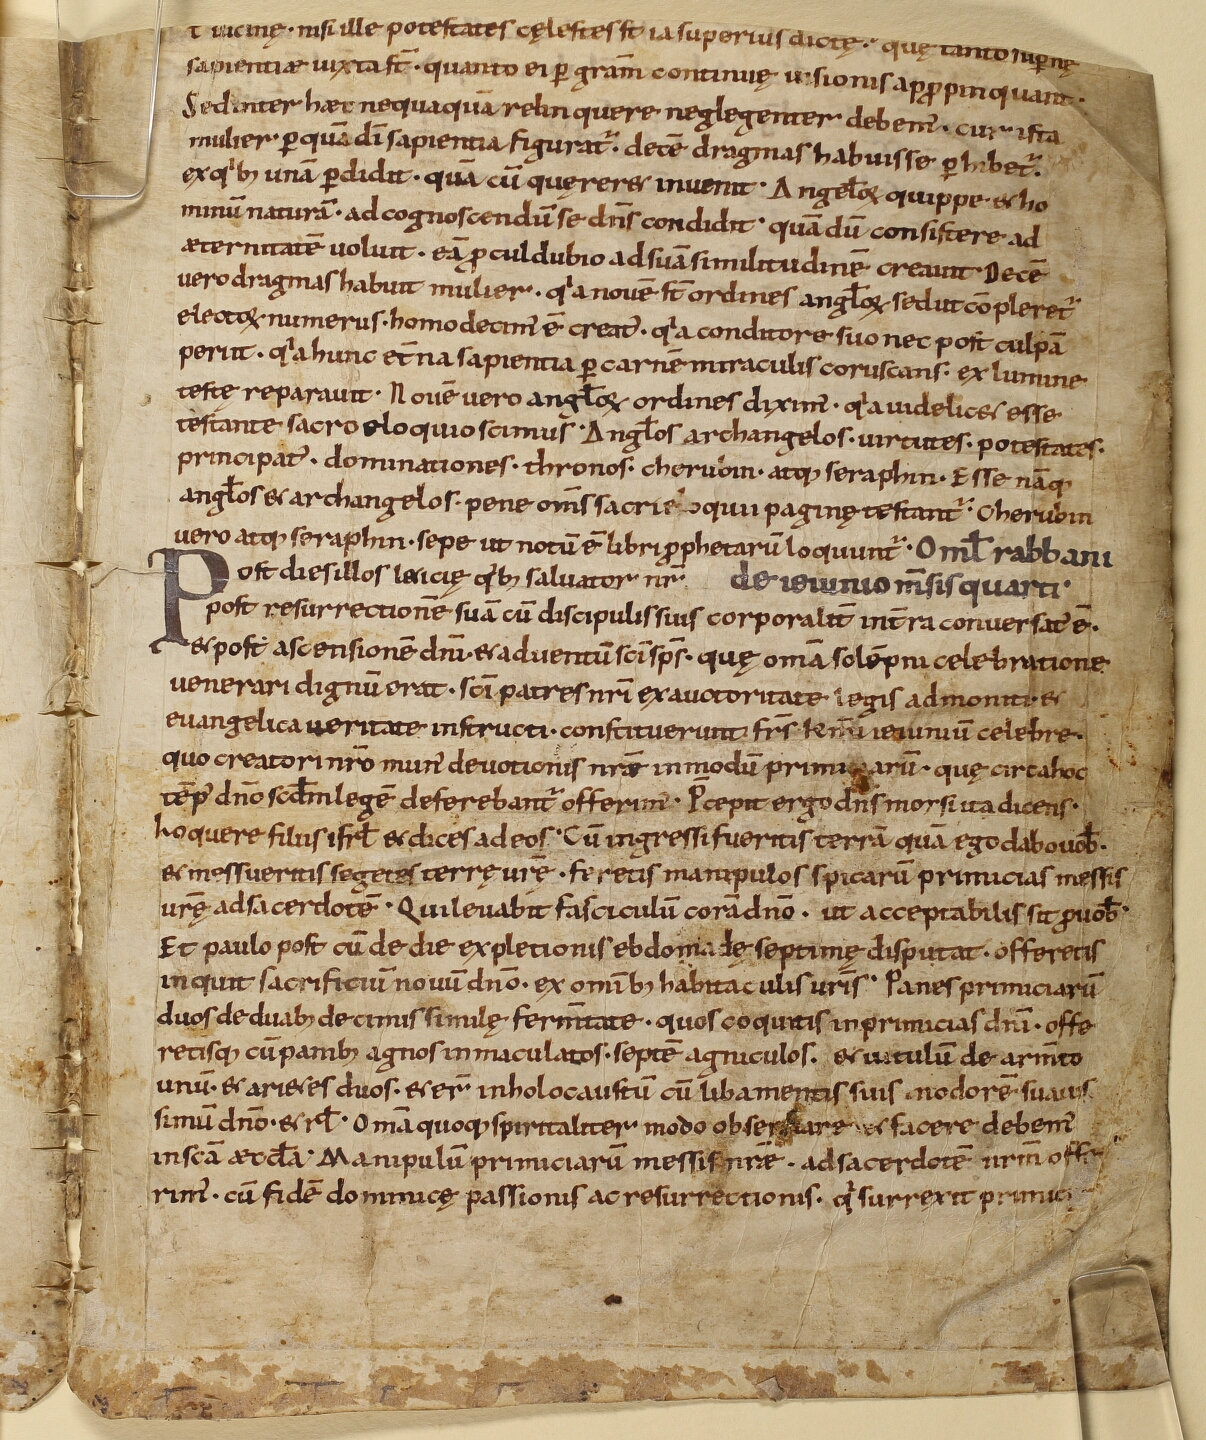 t uicinę · nisi ille potestates cęlestes st̄ ia superius dictę · quę tanto supernę
sapientiæ iuxta st̄ · quanto ei ꝑ grām continuę uisionis apꝓpinquant ·
Sed inter hæc nequaquā relinquere neglegenter debem̄ · cur ista
mulier ꝑ quā dī sapientia figurat̄ · decē dragmas habuisse ꝑhibet̄ ·
ex qͥb; unā ꝑdidit · quā cū quęreret inuenit · Angelo℞ quippe & ho
minū naturā · ad cognoscendū se dn̄s condidit · quā dū consistere ad
æternitatē uoluit · eā ꝓcul dubio ad suā similitudinē creauit · Decē
uero dragmas habuit mulier · qͥa nouē st̄ ordines angl̄o℞ · sed ut cōpleret̄
electo℞ numerus · homo decim̄ ē creat̄ · qͥa conditore suo nec post culpā
periit · qͥa hunc et̄na sapientia ꝑ carnē miraculis coruscans · ex lumine
testę reparauit · Nouē uero angl̄o℞ ordines dixim̄ · qͥa uidelic& esse
testante sacro eloquio scimus · Angl̄os archangelos · uirtutes · potestates ·
principat̄ · dominationes · thronos · cherubin · atq; seraphin · Esse nāq;
angl̄os & archangelos · pene om̄s sacri eloquii paginę testant̄ · Cherubin
uero atq; seraphin · sepe ut notū ē libri ꝓphetarū loquunt̄ · Oml̄ rabbani
Post dies illos lęticię qͥb; saluator nr̄ de ieiunio m̄sis quarti ·
post resurrectionē suā cū discipulis suis corporalit̄ int̄ra conuersat̄ ē ·
& post ascensionē dn̄i · & aduentū sc̄i sp̄s · quę om̄a solēpni celebratione
uenerari dignū erat · sc̄i patres nr̄i ex auctoritate legis admoniti · &
euangelica ueritate instructi · constituerunt fr̄s ieiuniū celebre ·
quo creatori nr̄o mun̄ deuotionis nr̄ę in modū primiciarū · quę circa hoc
tēp̄ dn̄o scd̄m legē deferebant̄ offerim̄ · P̄cepit ergo dn̄s morsi ita dicens ·
loquere filiis isrl̄ & dices ad eos · Cū ingressi fueritis terrā quā ego dabo uob̄ ·
& messueritis segetes terrę ur̄ę · feretis manipulos spicarū primicias messis
ur̄ę ad sacerdotē · Qui leuabit fasciculū corā dn̄o · ut acceptabilis sit ꝓ uob̄ ·
Et paulo post cū de die expletionis ebdomadę septimę disputat · offeretis
inquit sacrificiū nouū dn̄o · ex omīb; habitaculis ur̄is · Panes primiciarū
duos de duab; decimis similę ferm̄tatę · quos coquitis in primicias dn̄i · offe
retisq; cū panib; agnos inmaculatos · septē agniculos · & uitulū de arm̄to
unū · & ari&es duos · & er̄ in holocaustū cū libamentis suis in odorē suauis
simū dn̄o · & rl̄ · Om̄a quoq; spiritaliter modo obseruare & facere debem̄
in sc̄a æccl̄a · Manipulū primiciarū messis nr̄ę · ad sacerdotē nr̄m offe
rim̄ · cū fidē dominicę passionis ac resurrectionis · qͥ surrexit primici